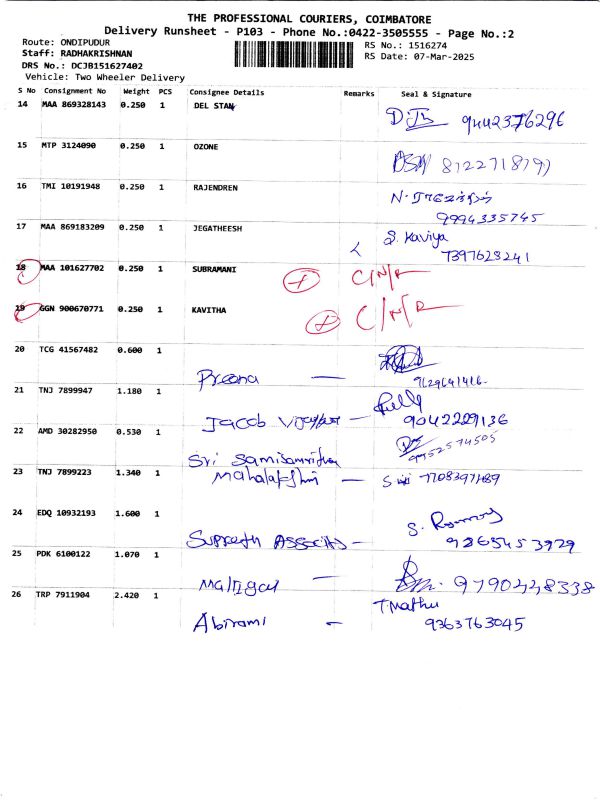 THE PROFESSIONAL COURIERS, COIMBATORE
Delivery Runsheet - P103 - Phone No.:0422-3505555 - Page No.:2
Route: ONDIPUDUR RS No.: 1516274
Staff: RADHAKRISHNAN RS Date: 07-Mar-2025
DRS No.: DCJB151627402
Vehicle: Two Wheeler Delivery
S No Consignment No Weight PCS Consignee Details Remarks Seal & Signature
14 MAA 869328143 0.250 1 DEL STAN 9442376296
15 MTP 3124090 0.250 1 OZONE
16 TMI 10191948 0.250 1 RAJENDREN
9994335745
17 MAA 869183209 0.250 1 JEGATHEESH S. Kaviya
7397623241
18 MAA 101627702 0.250 1 SUBRAMANI C/N/R
19 GGN 900670771 0.250 1 KAVITHA C/N/R
20 TCG 41567482 0.600 1
Preena — 9629641416
21 TNJ 7899947 1.180 1
Jacob — 9042229136
22 AMD 30282950 0.530 1 9952574505
Sri
23 TNJ 7899223 1.340 1 Mahalakshmi —
24 EDQ 10932193 1.600 1
9265453929
25 PDK 6100122 1.070 1
— 9790448338
26 TRP 7911904 2.420 1 T.Mathu
Abirami — 9363763045